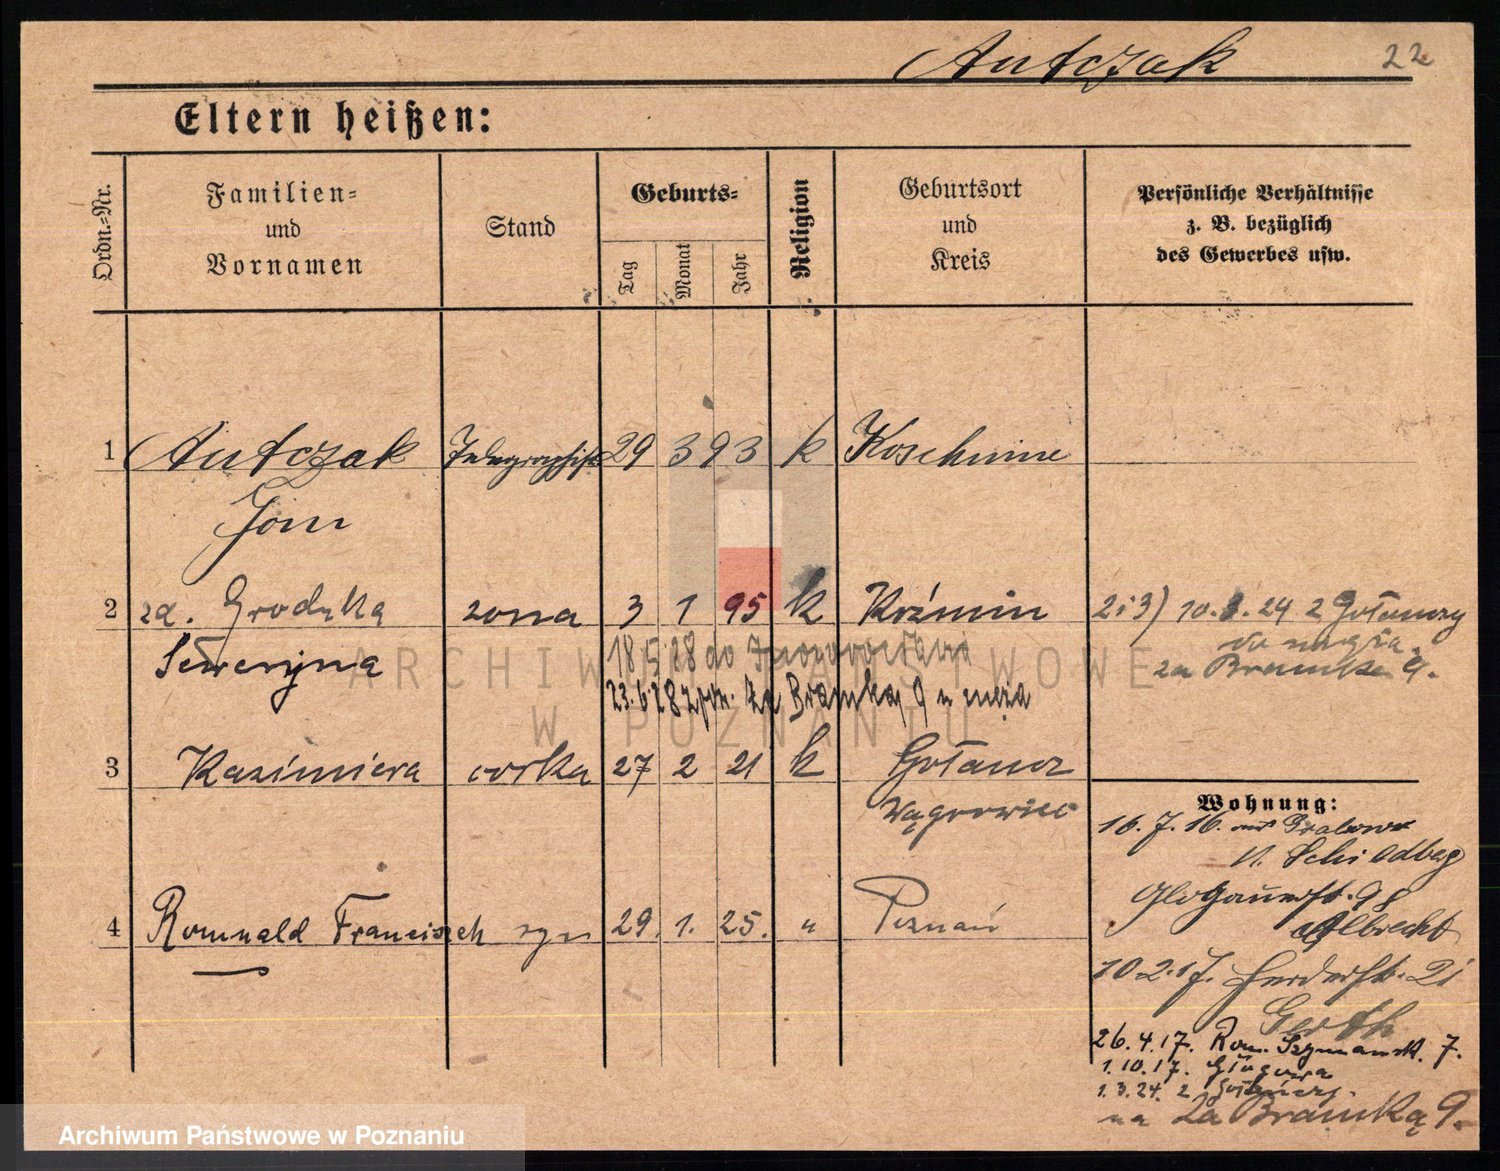 Antczak 22
Eltern heißen:
Ordn.-Nr.
Familien-
und
Vornamen
Stand
Geburts-
Tag
Monat
Jahr
Religion
Geburtsort
und
Kreis
Persönliche Verhältnisse
z. B. bezüglich
des Gewerbes usw.
1 Antczak Telegraphist 29 3 93 k Koschmine
2 zd. Grodzka żona 3 1 95 k Koźmin 2i3) 24 z Gołańczy
Seweryna 18.5.28 do do męża
za Bramką 9.
23.6.28 Za Bramką 9 m męża
3 Kazimiera córka 27 2 21 k Gołańcz
Wągrowiec
Wohnung:
16.7.16. aus Grabow
Schildberg
Glogauerstr. 98
Albrecht
4 Romuald Francisch syn 29. 1. 25. " Poznań
10.2.17. Herderstr. 21
Gerth
26.4.17. Rom. Szymansk. 7.
1.10.17. Głogowa
1.3.24. z Gołańczy
na Za Bramką 9.
ARCHIWUM PAŃSTWOWE
W POZNANIU
Archiwum Państwowe w Poznaniu